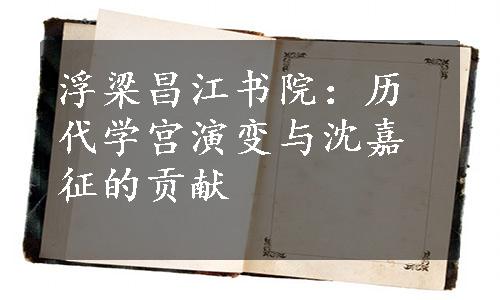 浮梁昌江书院：历
代学宫演变与沈嘉
征的贡献